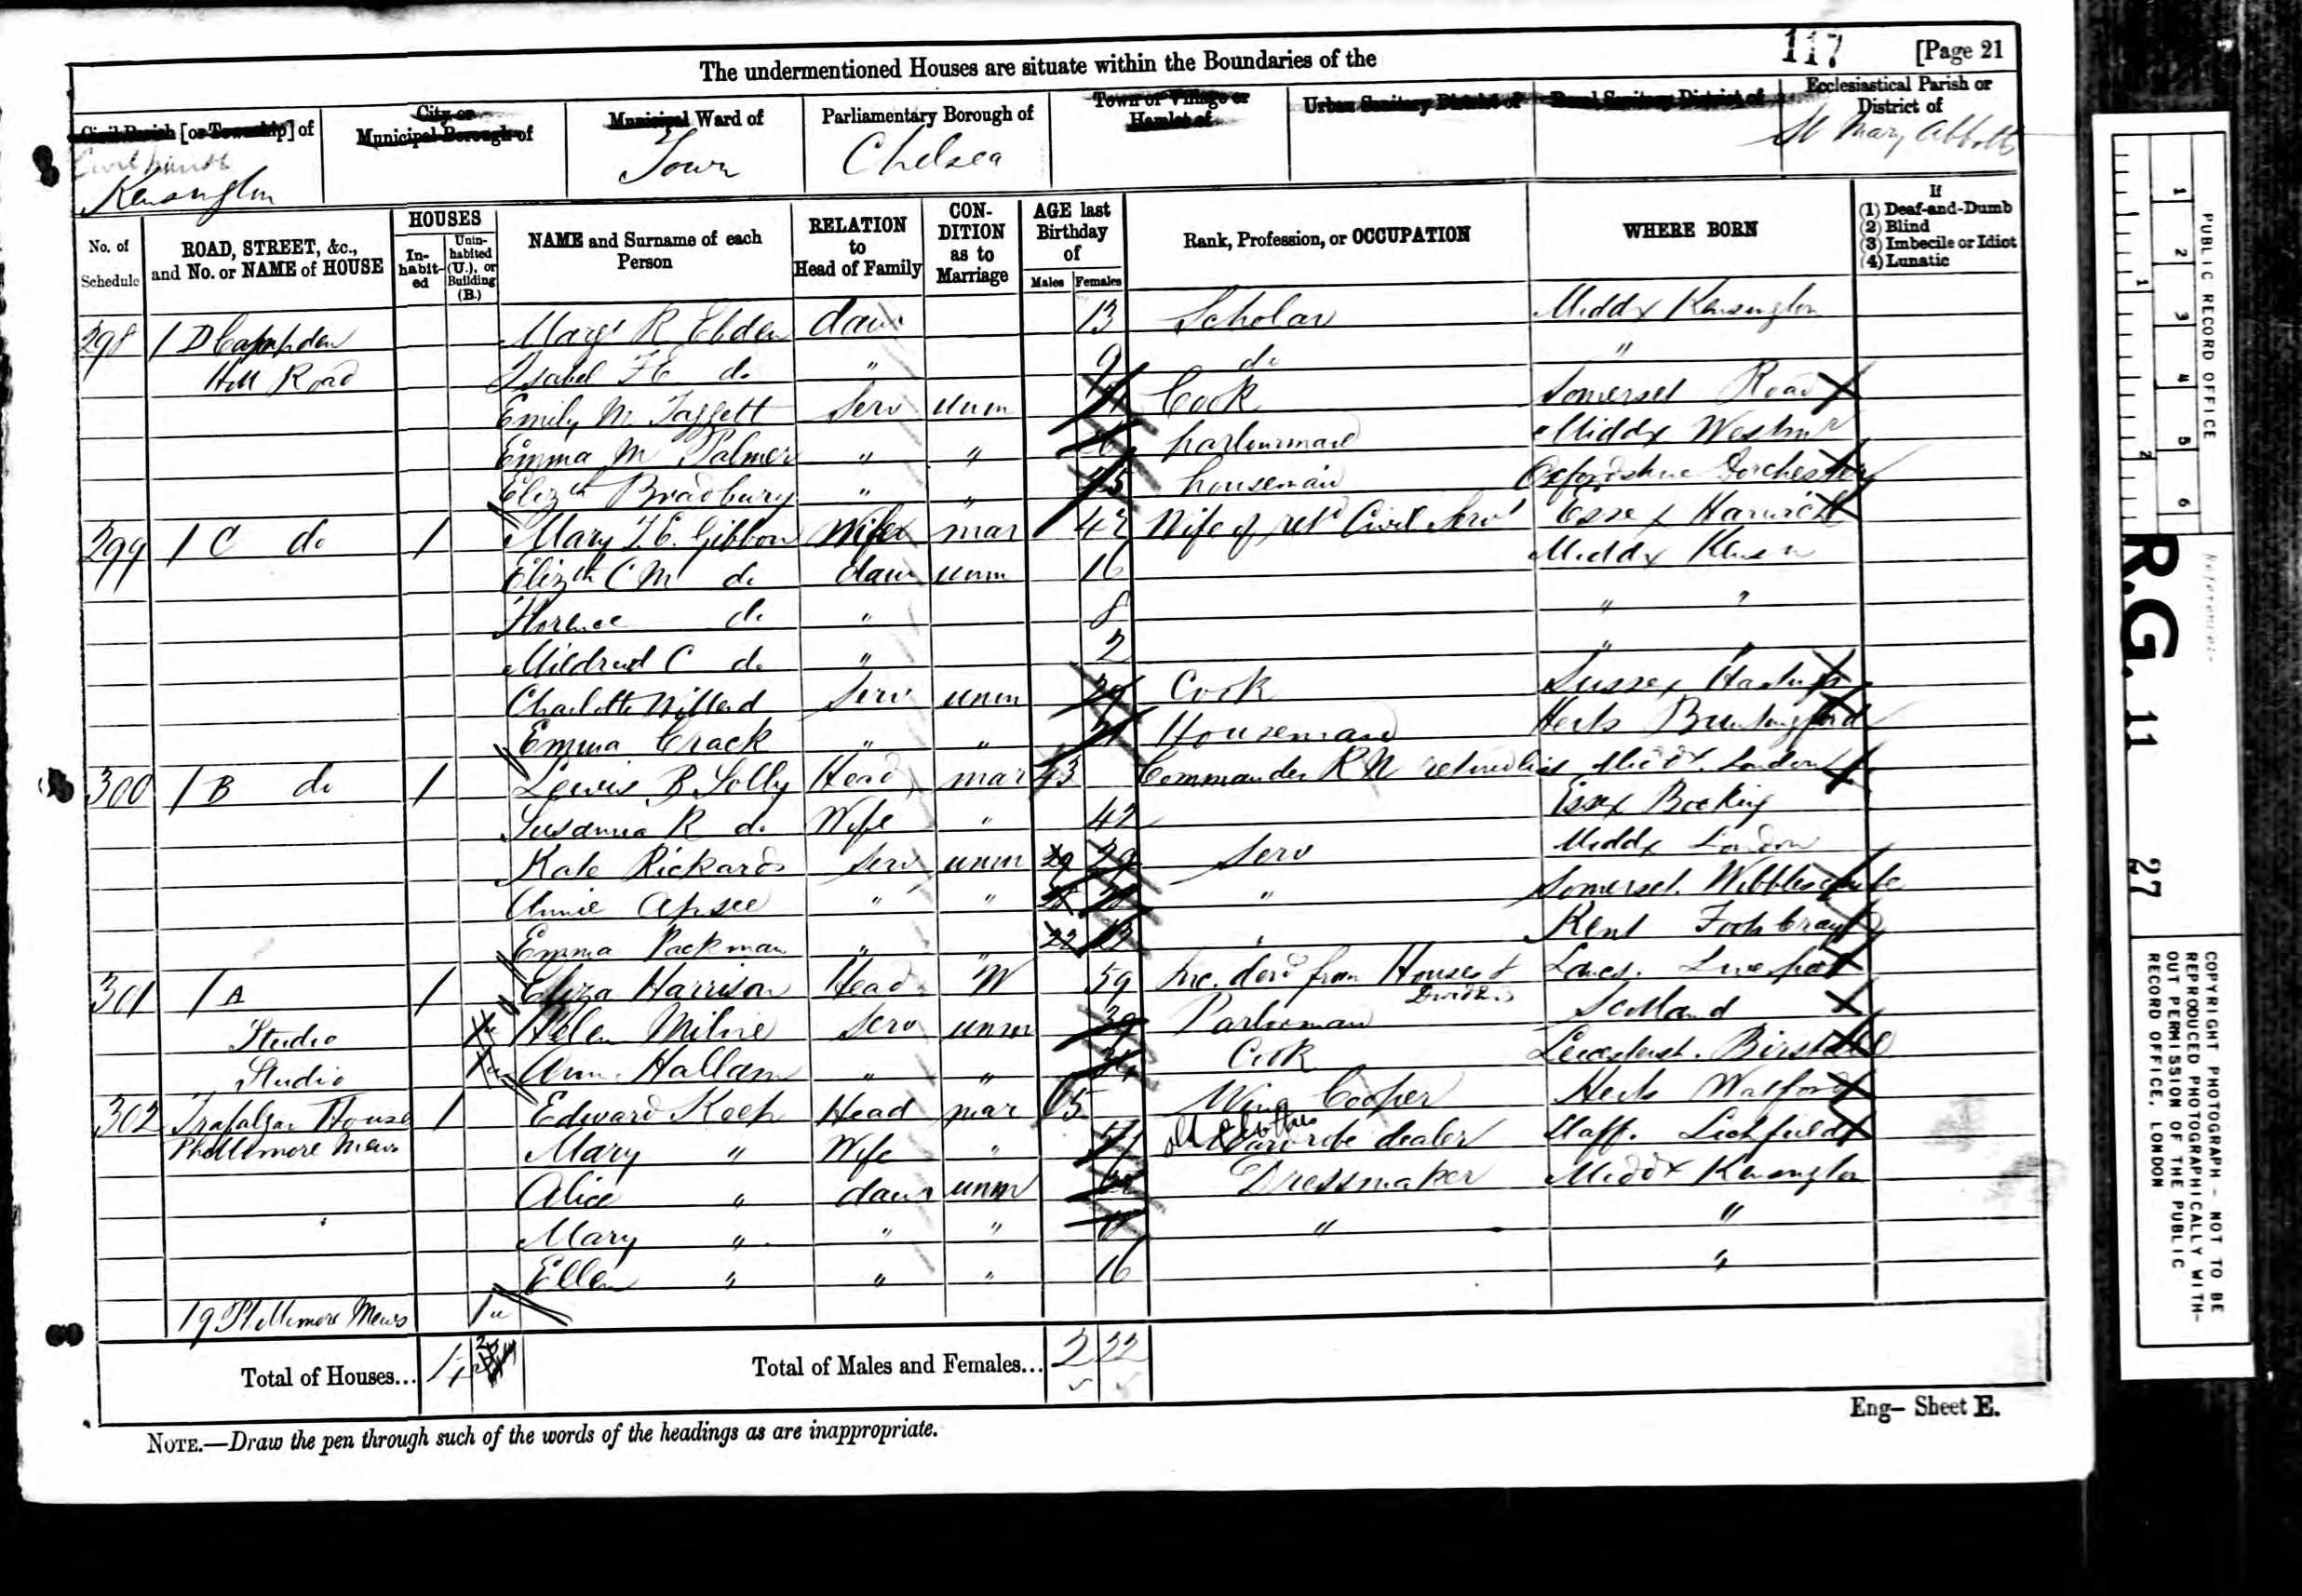 The undermentioned Houses are situate within the Boundaries of the
117
[Page 21
Civil Parish [or Township] of
City or Municipal Borough of
Municipal Ward of
Parliamentary Borough of
Town or Village or Hamlet of
Urban Sanitary District of
Rural Sanitary District of
Ecclesiastical Parish or District of
Kensington
Town
Chelsea
St Mary Abbotts
No. of Schedule
ROAD, STREET, &c., and No. or NAME of HOUSE
HOUSES
In-habit-ed
Unin-habited (U.), or Building (B.)
NAME and Surname of each Person
RELATION to Head of Family
CON-DITION as to Marriage
AGE last Birthday of
Males
Females
Rank, Profession, or OCCUPATION
WHERE BORN
If
(1) Deaf-and-Dumb
(2) Blind
(3) Imbecile or Idiot
(4) Lunatic
298 1 D Campden Margt R Ebden daur 13 Scholar Middx Kensington
Hill Road Isabel F E do " 9 do "
Emily M Taggett Serv unm Cook Somerset Road
Emma M Palmer " " parlourmaid Middx Westmr
Elizth Bradbury " " 25 housemaid Oxfordshire Dorchester
299 1 C do 1 Mary F. E. Gibbon Wife mar 42 Wife of retd Civil Servt Essex Harwich
Elizth C M do daur unm 16 Middx Kensn
Florence do " 8 " "
Mildred C do " 2 " "
Charlotte Willard Serv unm 29 Cook Sussex Hastings
Emma Crack " " 21 Housemaid Herts Buntingford
300 1 B do 1 Lewis B Solly Head mar 43 Commander R N retired list Middx. London
Susanna R do Wife " 42 Essex Bocking
Kate Rickards Serv unm 29 29 Serv Middx London
Annie Apsee " " " Somerset. Wibblescombe
Emma Packman " " 22 Kent Foots Cray
301 1 A 1 Eliza Harrison Head W 59 Inc. derd from Houses & Dividds Lancs. Liverpool
Studio 1u Helen Milne Serv unm 39 Parlormaid Scotland
Studio 1u Ann Hallam " " Cook Leicestersh. Birstall
302 Trafalgar House 1 Edward Keep Head mar 65 Wine Cooper Herts Watford
Phillimore Mews Mary " Wife " 57 old clothes Wardrobe dealer Staff. Lichfield
Alice " daur unm Dressmaker Middx Kensington
Mary " " " " "
Ellen " " " 16 "
19 Phillimore Mews 1u
Total of Houses... 4
Total of Males and Females... 2 22
Eng- Sheet E.
NOTE.—Draw the pen through such of the words of the headings as are inappropriate.
PUBLIC RECORD OFFICE
1 2 3 4 5 6
1 2
Reference:-
R.G. 11 27
COPYRIGHT PHOTOGRAPH - NOT TO BE REPRODUCED PHOTOGRAPHICALLY WITHOUT PERMISSION OF THE PUBLIC RECORD OFFICE, LONDON